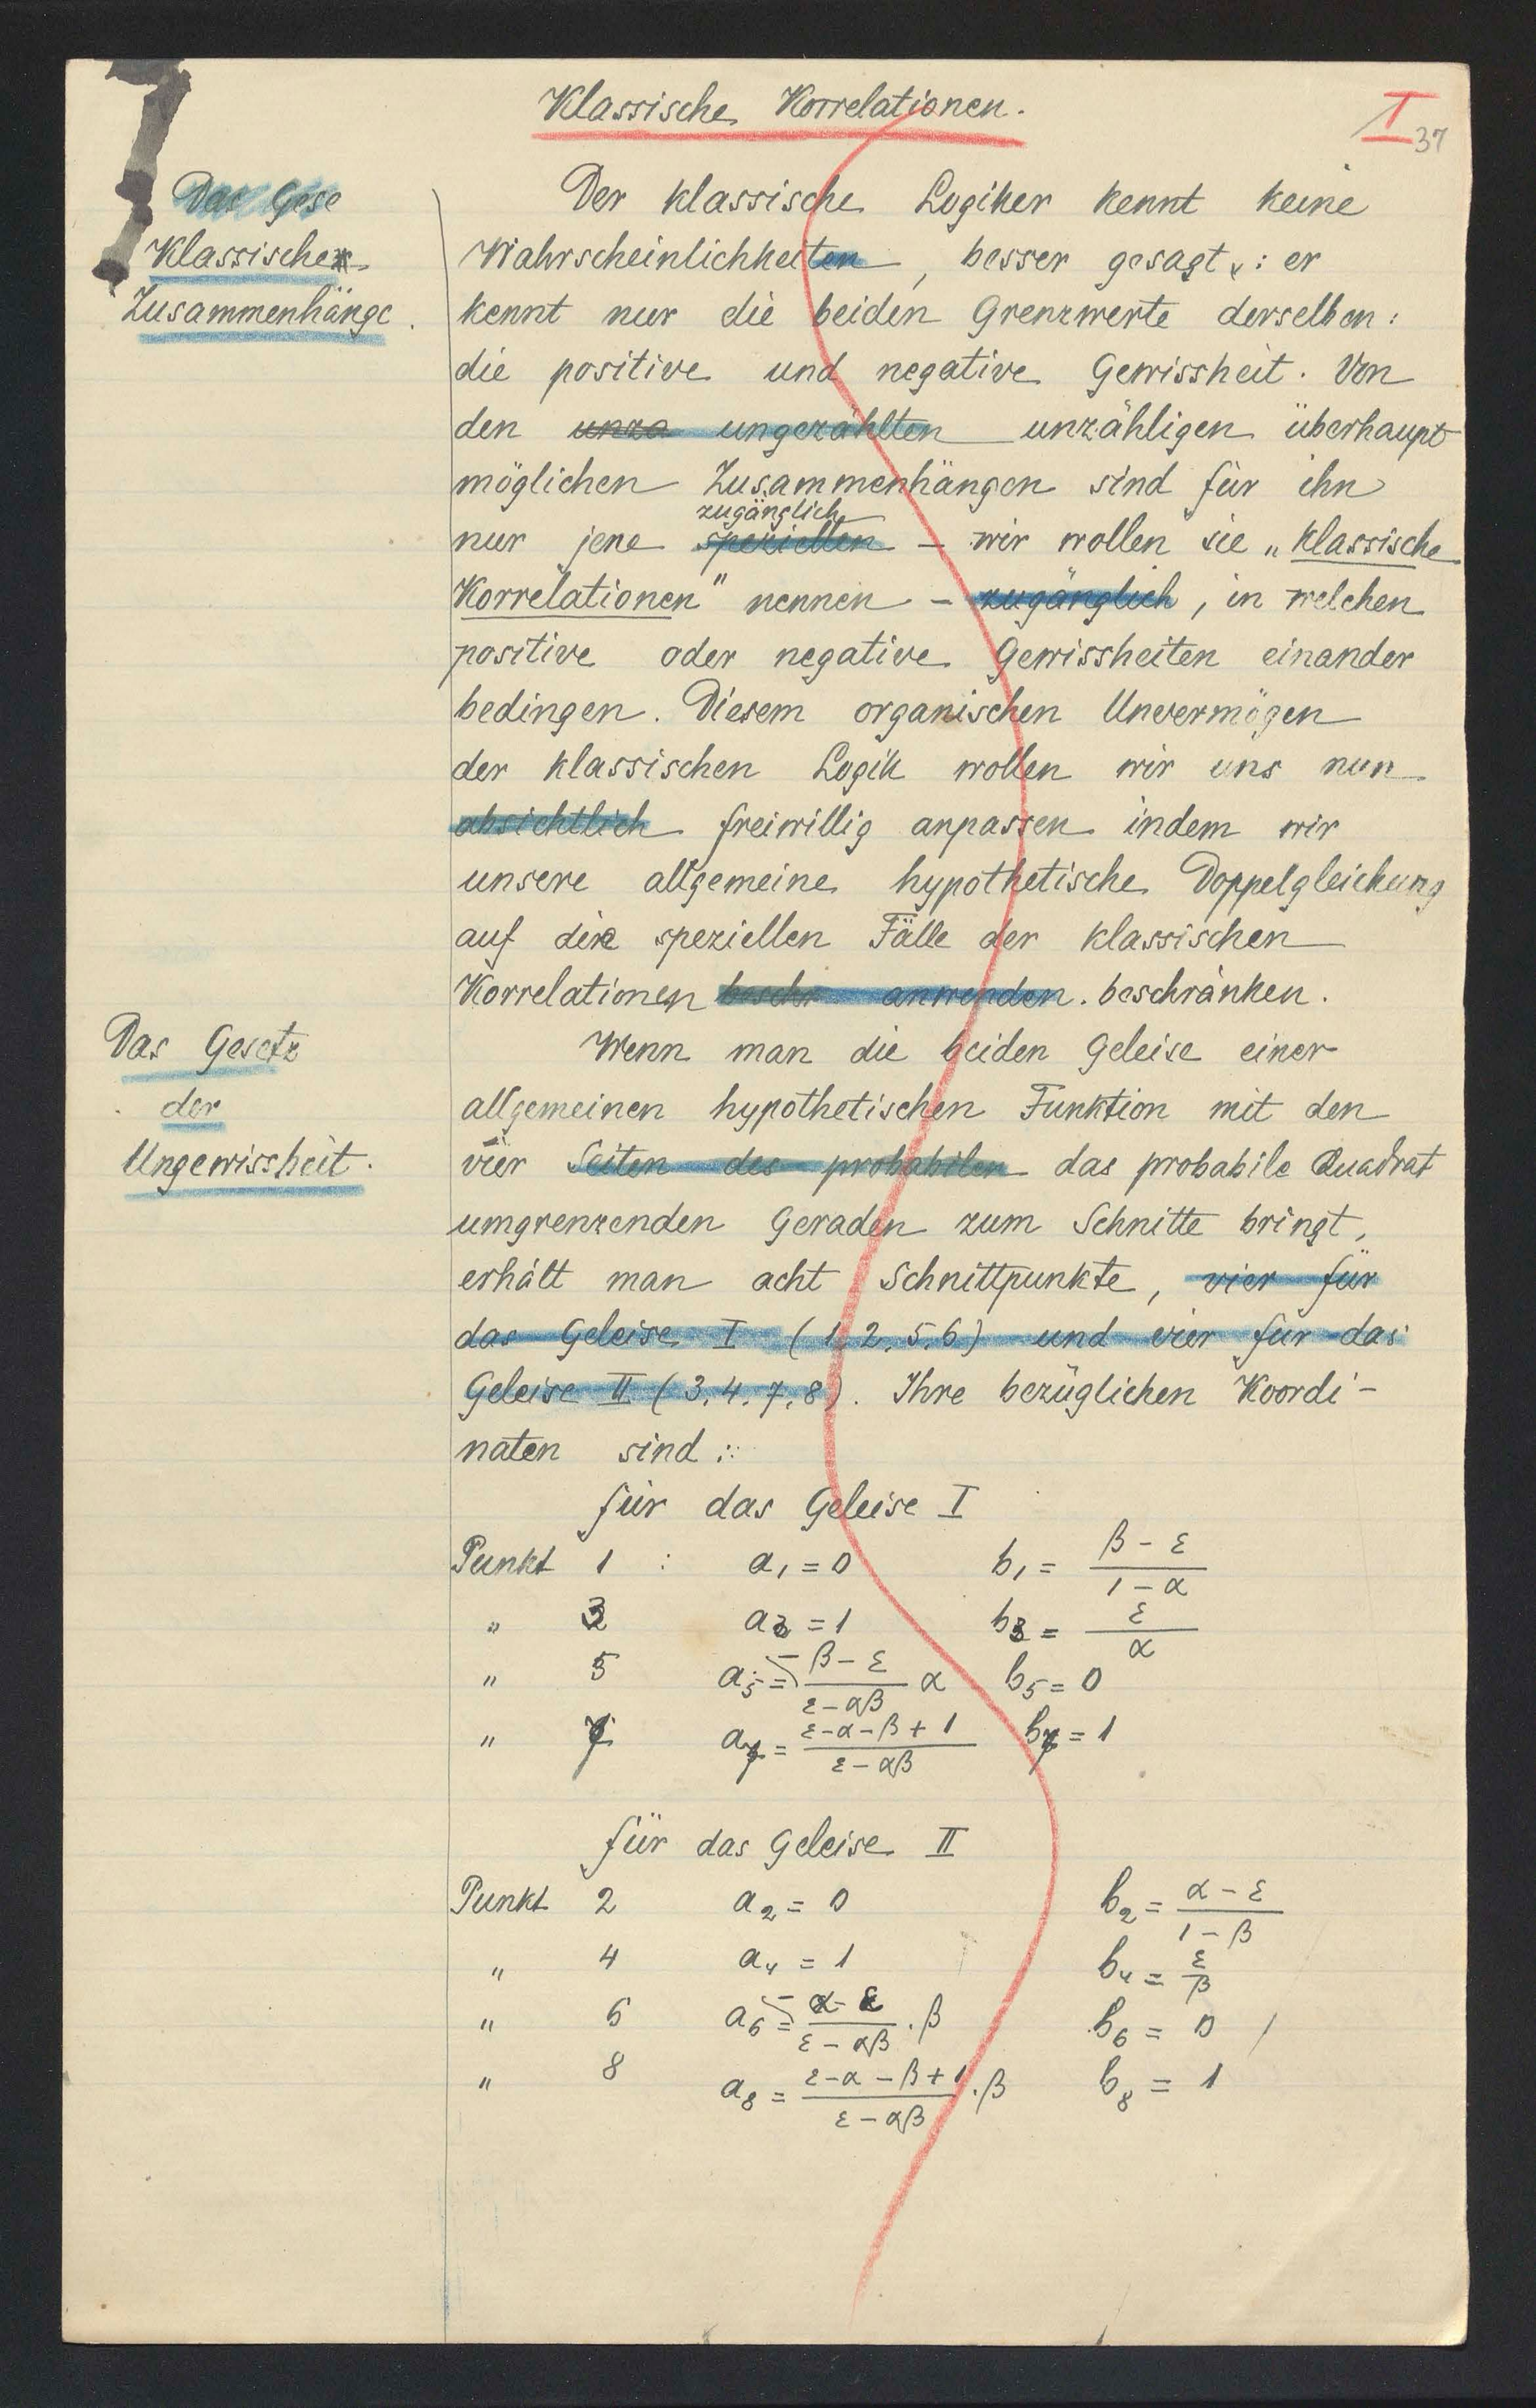 Klassische Korrelationen.
I
37
Das Gese
Klassische
Zusammenhänge.
Der klassische Logiker kennt keine
Wahrscheinlichkeiten, besser gesagt: er
kennt nur die beiden Grenzwerte derselben:
die positive und negative Gewissheit. Von
den unza ungezählten unzähligen überhaupt
möglichen Zusammenhängen sind für ihn
zugänglich
nur jene speziellen – wir wollen sie „klassische
Korrelationen" nennen – zugänglich, in welchen
positive oder negative Gewissheiten einander
bedingen. Diesem organischen Unvermögen
der klassischen Logik wollen wir uns nun
absichtlich freiwillig anpassen indem wir
unsere allgemeine hypothetische Doppelgleichung
auf die speziellen Fälle der klassischen
Korrelationen beschr anwenden. beschränken.
Das Gesetz
der
Ungewissheit.
Wenn man die beiden Geleise einer
allgemeinen hypothetischen Funktion mit den
vier Seiten des probabilen das probabile Quadrat
umgrenzenden Geraden zum Schnitte bringt,
erhält man acht Schnittpunkte, vier für
das Geleise I (1, 2, 5, 6) und vier für das
Geleise II (3, 4, 7, 8). Ihre bezüglichen Koordi-
naten sind:
für das Geleise I
Punkt 1 : a₁ = 0 b₁ = (β - ε)/(1 - α)
" 3 a₃ = 1 b₃ = ε/α
" 5 a₅ = - (β - ε)/(ε - αβ) α b₅ = 0
" 7 a₇ = (ε - α - β + 1)/(ε - αβ) b₇ = 1
für das Geleise II
Punkt 2 a₂ = 0 b₂ = (α - ε)/(1 - β)
" 4 a₄ = 1 b₄ = ε/β
" 6 a₆ = - (α - ε)/(ε - αβ) . β b₆ = 0
" 8 a₈ = (ε - α - β + 1)/(ε - αβ) . β b₈ = 1